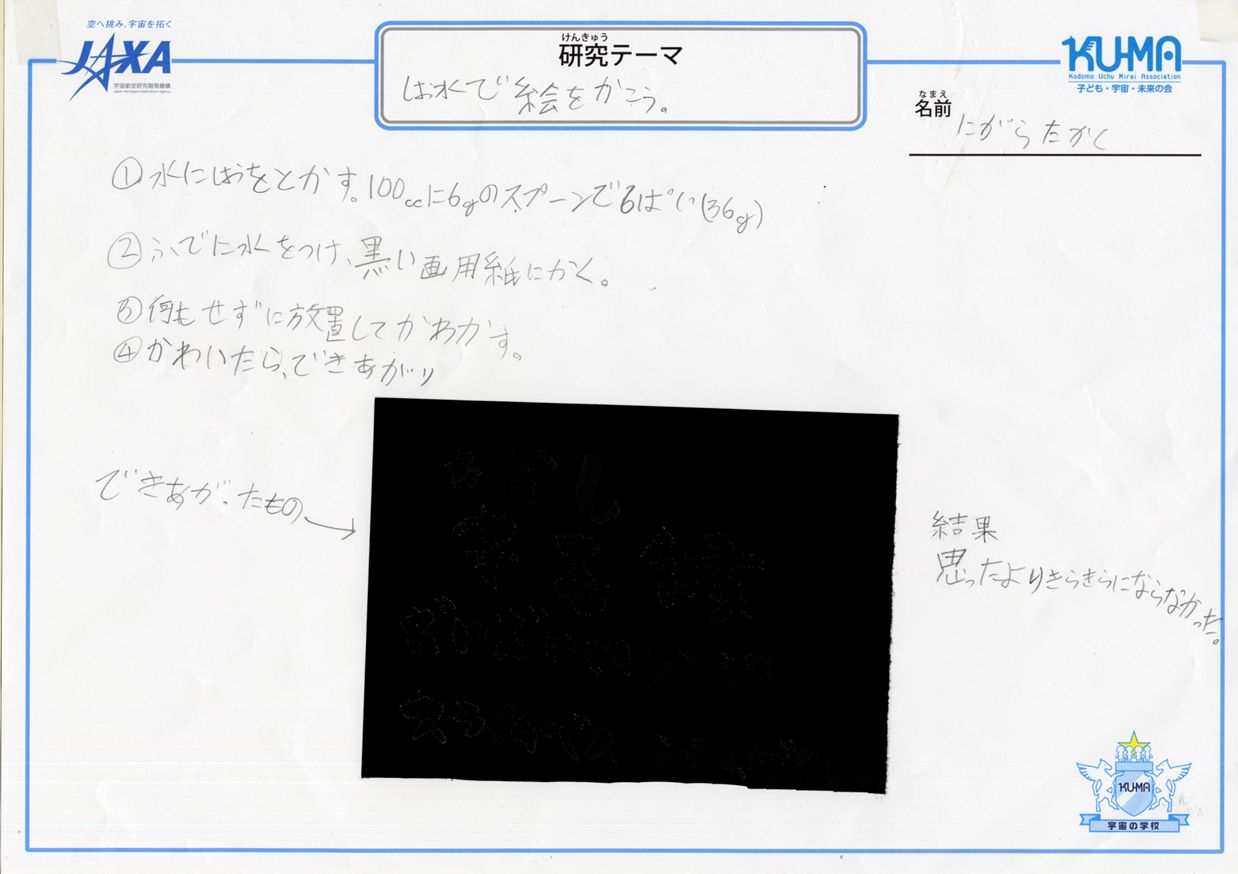 空へ挑み、宇宙を拓く
JAXA
宇宙航空研究開発機構
Japan Aerospace Exploration Agency
けんきゅう
研究テーマ
は水で絵をかこう。
KU-MA
Kodomo Uchu Mirai Association
子ども・宇宙・未来の会
なまえ
名前
にがらたかく
①水にほうをとかす。100ccに6gのスプーンで6ぱい(36g)
②ふでに水をつけ、黒い画用紙にかく。
③何もせずに放置してかわかす。
④かわいたら、できあがり
できあがったもの
結果
思ったよりきらきらにならなかった。
KU-MA
宇宙の学校